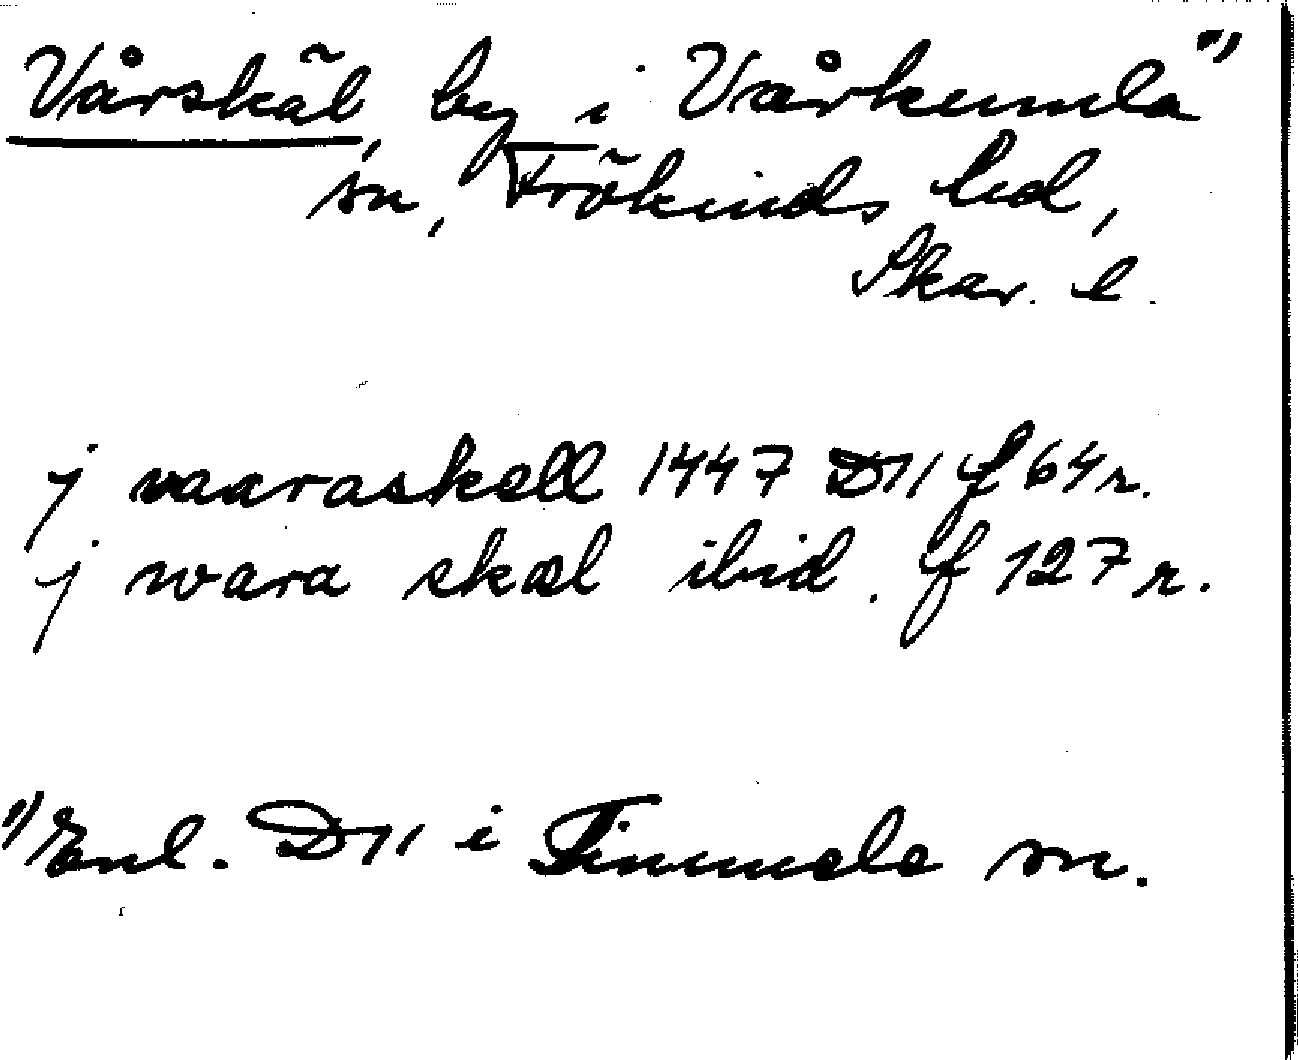 Vårskäl, by i Vårkumla 1)
sn, Frökinds hd,
Skar. l.
j vaaraskell 1447 D 11 f 64 r.
j wara skæl ibid. f 127 r.
1) Enl. D 11 i Timmele sn.